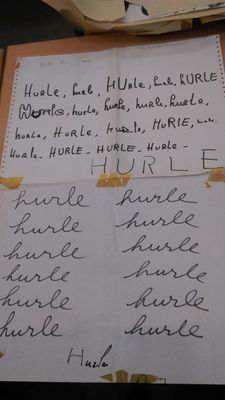 HURLE, hurle, HURle, hurle, hURLE
HURLE, hurle, hurle, hurle, hurle,
hurle, HURLE, Hurle, HuRlE, hurle.
Hurle - HURLE - HURLE - Hurle -
HURLE
hurle hurle
hurle hurle
hurle hurle
hurle hurle
hurle hurle
hurle hurle
Hurle